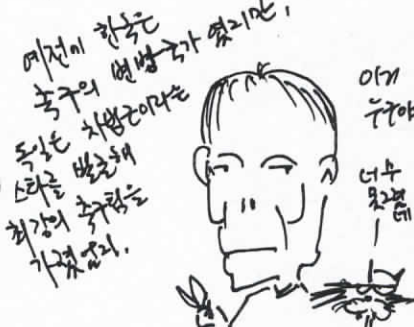 예전에 한국은
축구의 변방국가 였지만,
독일은 차범근이라는
스타를 발굴해
최강의 축구팀을
가졌었지.
이게
누구야
너무
못그렸
네